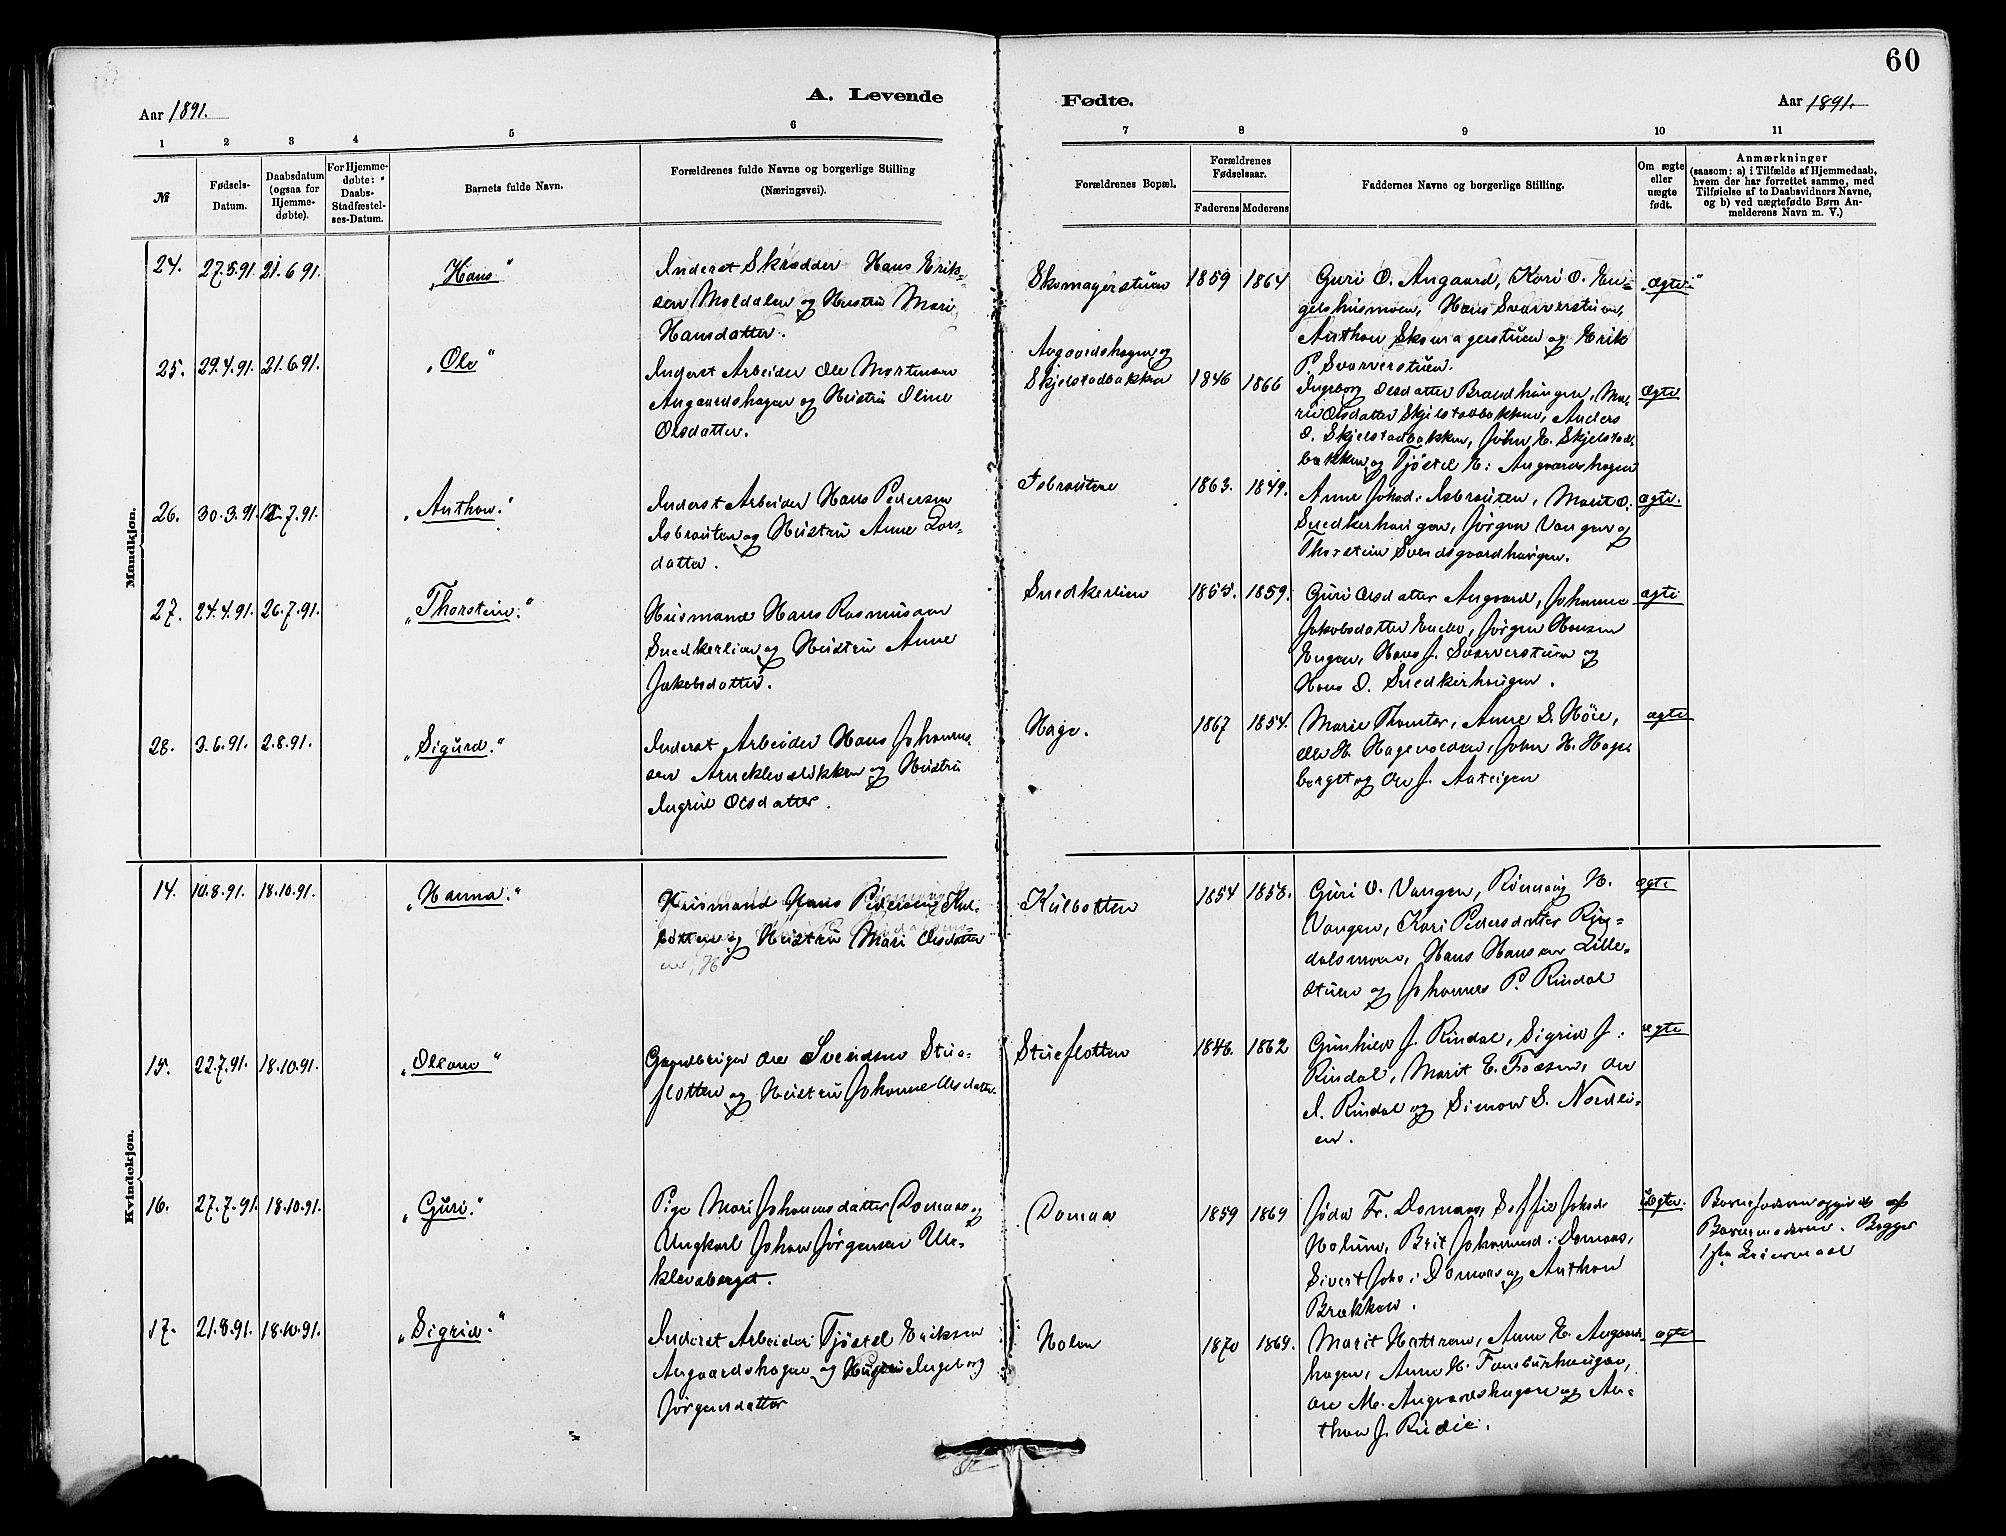 60
Aar 1891.
A. Levende
Fødte.
Aar 1891.
1 2 3 4 5 6 7 8 9 10 11
№
Fødsels-Datum.
Daabsdatum (ogsaa for Hjemmedøbte).
For Hjemmedøbte: Daabs-Stadfæstelses-Datum.
Barnets fulde Navn.
Forældrenes fulde Navne og borgerlige Stilling
(Næringsvei).
Forældrenes Bopæl.
Forældrenes Fødselsaar.
Faderens Moderens
Faddernes Navne og borgerlige Stilling.
Om ægte eller uægte født.
Anmærkninger
(saasom: a) i Tilfælde af Hjemmedaab,
hvem der har forrettet samme, med
Tilføielse af to Daabsvidners Navne,
og b) ved uægtefødte Børn Anmelderens Navn m. V.)
Mandkjøn.
24. 27.5.91. 21.6.91. „Hans“
Inderst Skrædder Hans Erik-
sen Moldalen og Hustru Mari
Hansdatter.
Skomagerstuen 1859 1864
Guri O. Angaard, Kari O. En-
gelshusmoen, Hans Svarverstuen,
Anthon Skomagerstuen og Erik
P. Svarverstuen.
„ægte“
25. 29.4.91. 21.6.91. „Ole“
Inderst Arbeider Ole Mortensen
Angaardshagen og Hustru Oline
Olsdatter.
Angaardshagen og
Skjelstadbakken 1846 1866
Ingeborg Olsdatter Brændhaugen, Ma-
rie Olsdatter Skjelstadbakken, Anders
O. Skjelstadbakken, John E. Skjelstad-
bakken og Tjøstel E. Angaardshagen
Ægte
26. 30.3.91. 12.7.91. „Anthon.“
Inderst Arbeider Hans Pedersen
Isbrauten og Hustru Anne Lars-
datter.
Isbrautene 1863. 1849.
Anne Johsd. Isbrauten, Marit O.
Snedkerhaugen, Jørgen Vangen og
Thorstein Svendsgaardhaugen.
ægte.
27. 24.4.91. 26.7.91. „Thorstein.“
Husmand Hans Rasmussen
Snedkerlien og Hustru Anne
Jakobsdatter.
Snedkerlien 1859.
Guri Olsdatter Angaard, Johanne
Jakobsdatter Jørgen Hansen
Engen, Hans J. Svarverstuen og
Hans O. Snedkerhaugen.
ægte
28. 3.6.91. 2.8.91. „Sigurd.“
Inderst Arbeider Hans Johanne-
sen Arneklevsløkken og Hustru
Ingrid Olsdatter.
Hage. 1867 1854.
Marie Thomter, Anne S. Høie,
Ole H. John H. Hage-
berget og Ole J.
ægte
Kvindekjøn.
14. 10.8.91. 18.10.91. „Hanna.“
Husmand Hans Pedersen Kul-
botten og Hustru Mari Olsdatter
Kulbotten 1854 1858.
Guri O. Vangen, Rønnaug H.
Vangen, Kari Pedersdatter Rin-
dalsmoen, Hans Hansen Lille-
stuen og Johannes P. Rindal
ægte
15. 22.7.91. 18.10.91. „Oleane“
Gaardbruger Ole Svendsen Stue-
flotten og Hustru Johanne Olsdatter.
Stueflotten 1846. 1862
Gunhild J. Rindal, Sigrid J.
Rindal, Marit E. Ole
I. Rindal og Simon S. Nordli-
en.
ægte
16. 27.7.91. 18.10.91. „Guri.“
Pige Mari Johannesdatter Domaas og
Ungkarl Johan Jørgensen Ule-
klevsberget.
Domaas 1859 1869
Jøda Fr. Domaas, Soffie Johsd.
Holum, Brit Johannesd. Domaas,
Sivert Johs. Domaas og Anthon
Brækken.
Uægte.
Barnefaderen opgivet af
Barnemoderen. Begges
1ste Leiermaal
17. 21.8.91. 18.10.91. „Sigrid.“
Inderst Arbeider Tjøstel Eriksen
Angaardshagen og Hustru Ingeborg
Jørgensdatter
Holen 1870 1869.
Marit Hattrem, Anne E. Angaards-
hagen, Anne H.
Ole M. Angaardshagen og An-
thon J.
ægte